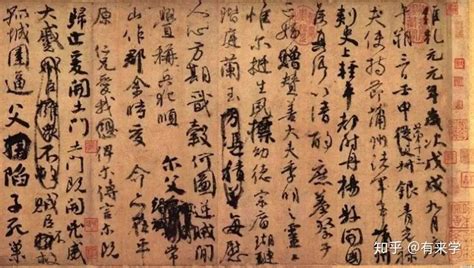 維乾元元年歲次戊戌九月
午朔三日壬申第十三銀青光
夫使持節蒲州諸軍事蒲州
刺史上輕車都尉丹楊縣開國
侯真卿以清酌庶羞祭于
亡姪贈贊善大夫季明
惟爾挺生夙標幼德宗廟瑚璉
階庭蘭玉每慰
人心方期戩穀何圖逆賊閒
釁稱兵犯順爾父
山作郡余時受命
原仁兄愛我俾爾傳言爾既
歸止爰開土門土門既開凶威
大蹙賊臣不救
孤城圍逼父陷子死巢
知乎 @有来学